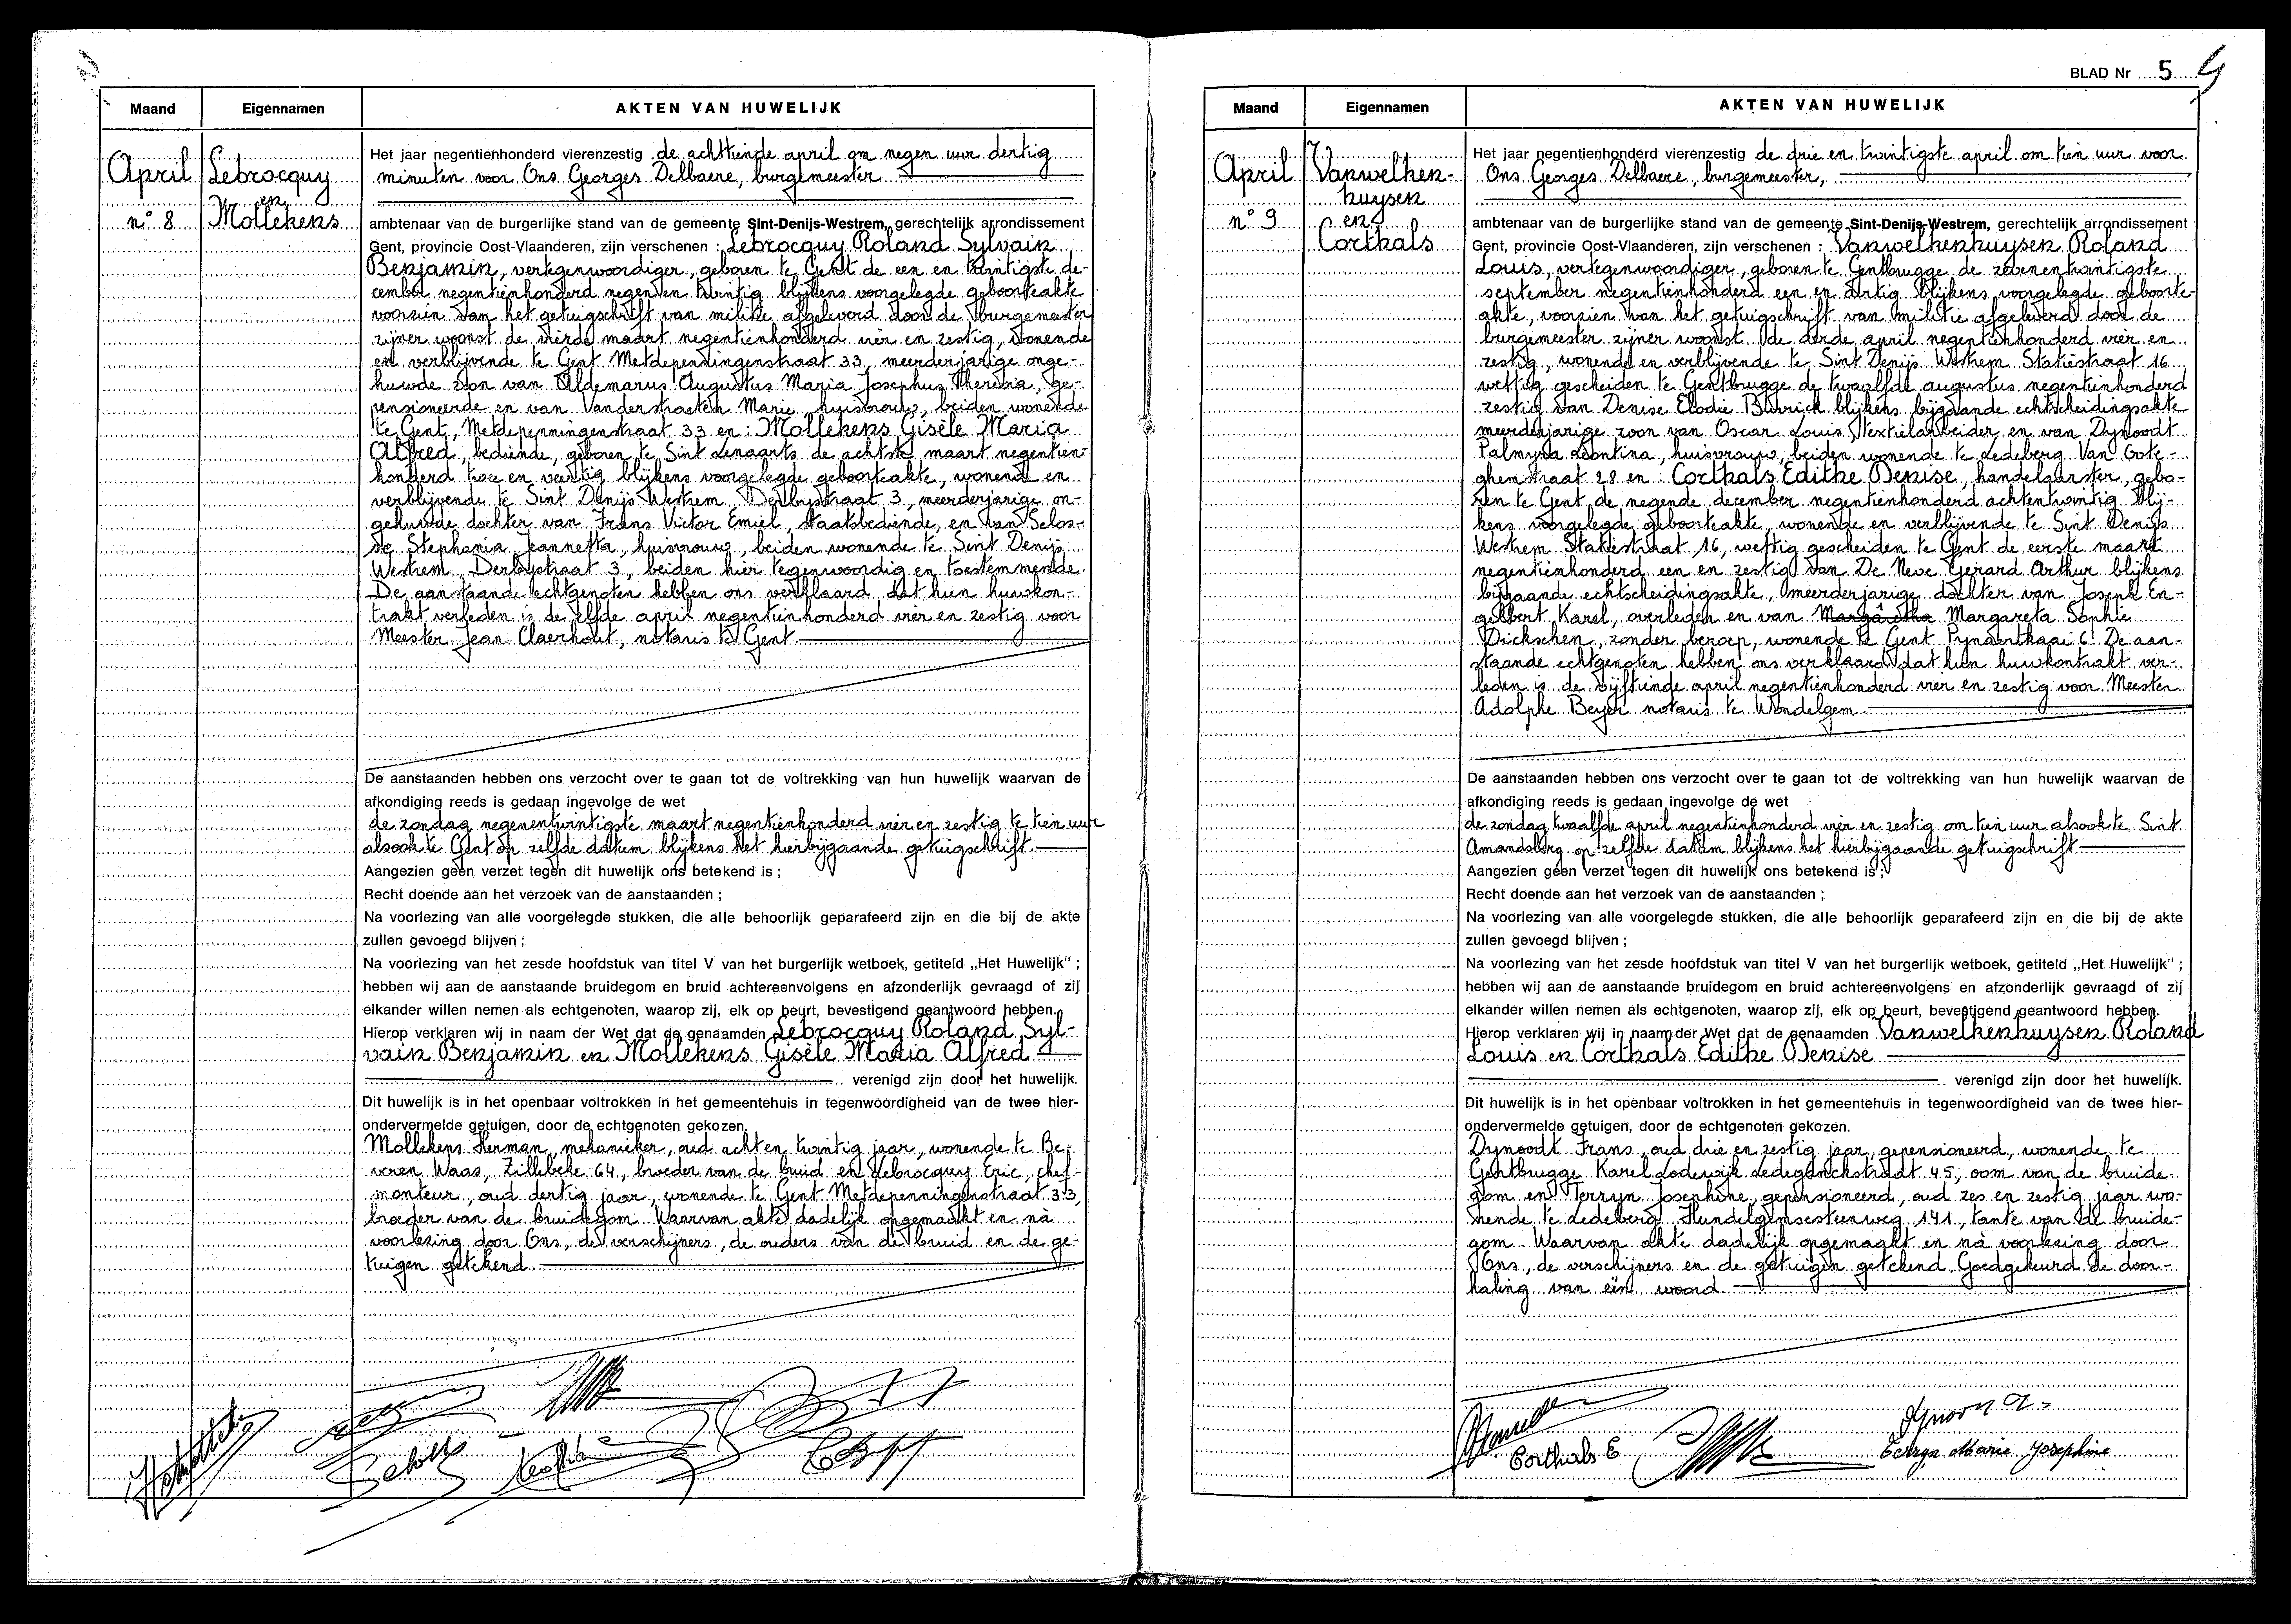 Maand
Eigennamen
AKTEN VAN HUWELIJK
April
n° 8
Lebrocquy
en
Mollekens
Het jaar negentienhonderd vierenzestig de achttiende april om negen uur dertig
minuten voor Ons Georges Delbaere, burgemeester
ambtenaar van de burgerlijke stand van de gemeente Sint-Denijs-Westrem, gerechtelijk arrondissement
Gent, provincie Oost-Vlaanderen, zijn verschenen : Lebrocquy Roland Sylvain
Benjamin, vertegenwoordiger, geboren te Gent de een en twintigste de-
cember negentienhonderd negen en twintig blijkens voorgelegde geboorteakte
voorzien van het getuigschrift van militie afgeleverd door de burgemeester
zijner woonst de vierde maart negentienhonderd vier en zestig, wonende
en verblijvende te Gent Metdepenningenstraat 33, meerderjarige onge-
huwde zoon van Aldemarus Augustus Maria Josephus Theresia, ge-
pensioneerde en van Vanderstraeten Marie, huisvrouw, beiden wonende
te Gent, Metdepenningenstraat 33 en : Mollekens Gisèle Maria
Alfred, bediende, geboren te Sint Lenaarts de achtste maart negentien-
honderd twee en veertig blijkens voorgelegde geboorteakte, wonende en
verblijvende te Sint Denijs Westrem Derbystraat 3, meerderjarige on-
gehuwde dochter van Frans Victor Emiel, staatsbediende, en van Selos-
se Stephania Jeannetta, huisvrouw, beiden wonende te Sint Denijs
Westrem, Derbystraat 3, beiden hier tegenwoordig en toestemmende.
De aanstaande echtgenoten hebben ons verklaard dat hun huwkon-
trakt verleden is de elfde april negentienhonderd vier en zestig voor
Meester Jean Claerhout, notaris te Gent.
De aanstaanden hebben ons verzocht over te gaan tot de voltrekking van hun huwelijk waarvan de
afkondiging reeds is gedaan ingevolge de wet
de zondag negenentwintigste maart negentienhonderd vier en zestig te tien uur
alsook te Gent op zelfde datum blijkens het hierbijgaande getuigschrift.
Aangezien geen verzet tegen dit huwelijk ons betekend is ;
Recht doende aan het verzoek van de aanstaanden ;
Na voorlezing van alle voorgelegde stukken, die alle behoorlijk geparafeerd zijn en die bij de akte
zullen gevoegd blijven ;
Na voorlezing van het zesde hoofdstuk van titel V van het burgerlijk wetboek, getiteld „Het Huwelijk" ;
hebben wij aan de aanstaande bruidegom en bruid achtereenvolgens en afzonderlijk gevraagd of zij
elkander willen nemen als echtgenoten, waarop zij, elk op beurt, bevestigend geantwoord hebben.
Hierop verklaren wij in naam der Wet dat de genaamden Lebrocquy Roland Syl-
vain Benjamin en Mollekens Gisèle Maria Alfred
verenigd zijn door het huwelijk.
Dit huwelijk is in het openbaar voltrokken in het gemeentehuis in tegenwoordigheid van de twee hier-
ondervermelde getuigen, door de echtgenoten gekozen.
Mollekens Herman, mekanieker, oud acht en twintig jaar, wonende te Be-
veren Waas, Zillebeke 64, broeder van de bruid en Lebrocquy Eric, chef-
monteur, oud dertig jaar, wonende te Gent Metdepenningenstraat 33,
broeder van de bruidegom. Waarvan akte dadelijk opgemaakt en na
voorlezing door Ons, de verschijners, de ouders van de bruid en de ge-
tuigen getekend.
BLAD Nr 5
Maand
Eigennamen
AKTEN VAN HUWELIJK
April
n° 9
Vanwelken-
huysen
en
Corthals
Het jaar negentienhonderd vierenzestig de drie en twintigste april om tien uur voor
Ons Georges Delbaere, burgemeester,
ambtenaar van de burgerlijke stand van de gemeente Sint-Denijs-Westrem, gerechtelijk arrondissement
Gent, provincie Oost-Vlaanderen, zijn verschenen : Vanwelkenhuysen Roland
Louis, vertegenwoordiger, geboren te Gentbrugge de zevenentwintigste
september negentienhonderd een en dertig blijkens voorgelegde geboorte-
akte, voorzien van het getuigschrift van militie afgeleverd door de
burgemeester zijner woonst de derde april negentienhonderd vier en
zestig, wonende en verblijvende te Sint Denijs Westrem Statiestraat 16
wettig gescheiden te Gentbrugge de twaalfde augustus negentienhonderd
zestig van Denise Elodie Burrick blijkens bijgaande echtscheidingsakte
meerderjarige zoon van Oscar Louis, textielarbeider en van Dynoodt
Palmyra Leontina, huisvrouw, beiden wonende te Ledeberg Van Oote-
ghemstraat 28 en : Corthals Edithe Denise, handelaarster, gebo-
ren te Gent de negende december negentienhonderd achtentwintig blij-
kens voorgelegde geboorteakte, wonende en verblijvende te Sint Denijs
Westrem Statiestraat 16, wettig gescheiden te Gent de eerste maart
negentienhonderd een en zestig van De Neve Gerard Arthur blijkens
bijgaande echtscheidingsakte, meerderjarige dochter van Joseph En-
gelbert Karel, overleden en van Margaretha Margareta Sophie
Dickschen, zonder beroep, wonende te Gent Pynaertkaai 6. De aan-
staande echtgenoten hebben ons verklaard dat hun huwkontrakt ver-
leden is de vijftiende april negentienhonderd vier en zestig voor Meester
Adolphe Beyer notaris te Wondelgem.
De aanstaanden hebben ons verzocht over te gaan tot de voltrekking van hun huwelijk waarvan de
afkondiging reeds is gedaan ingevolge de wet
de zondag twaalfde april negentienhonderd vier en zestig om tien uur alsook te Sint
Amandsberg op zelfde datum blijkens het hierbijgaande getuigschrift
Aangezien geen verzet tegen dit huwelijk ons betekend is ;
Recht doende aan het verzoek van de aanstaanden ;
Na voorlezing van alle voorgelegde stukken, die alle behoorlijk geparafeerd zijn en die bij de akte
zullen gevoegd blijven ;
Na voorlezing van het zesde hoofdstuk van titel V van het burgerlijk wetboek, getiteld „Het Huwelijk" ;
hebben wij aan de aanstaande bruidegom en bruid achtereenvolgens en afzonderlijk gevraagd of zij
elkander willen nemen als echtgenoten, waarop zij, elk op beurt, bevestigend geantwoord hebben.
Hierop verklaren wij in naam der Wet dat de genaamden Vanwelkenhuysen Roland
Louis en Corthals Edithe Denise
verenigd zijn door het huwelijk.
Dit huwelijk is in het openbaar voltrokken in het gemeentehuis in tegenwoordigheid van de twee hier-
ondervermelde getuigen, door de echtgenoten gekozen.
Dynoodt Frans, oud drie en zestig jaar, gepensioneerd, wonende te
Gentbrugge Karel Lodewijk Ledeganckstraat 45, oom van de bruide-
gom en Terryn Josephine, gepensioneerd, oud zes en zestig jaar wo-
nende te Ledeberg Hundelgemsesteenweg 141, tante van de bruide-
gom. Waarvan akte dadelijk opgemaakt en na voorlezing door
Ons, de verschijners en de getuigen getekend. Goedgekeurd de door-
haling van één woord
Corthals E
Marie Josephine